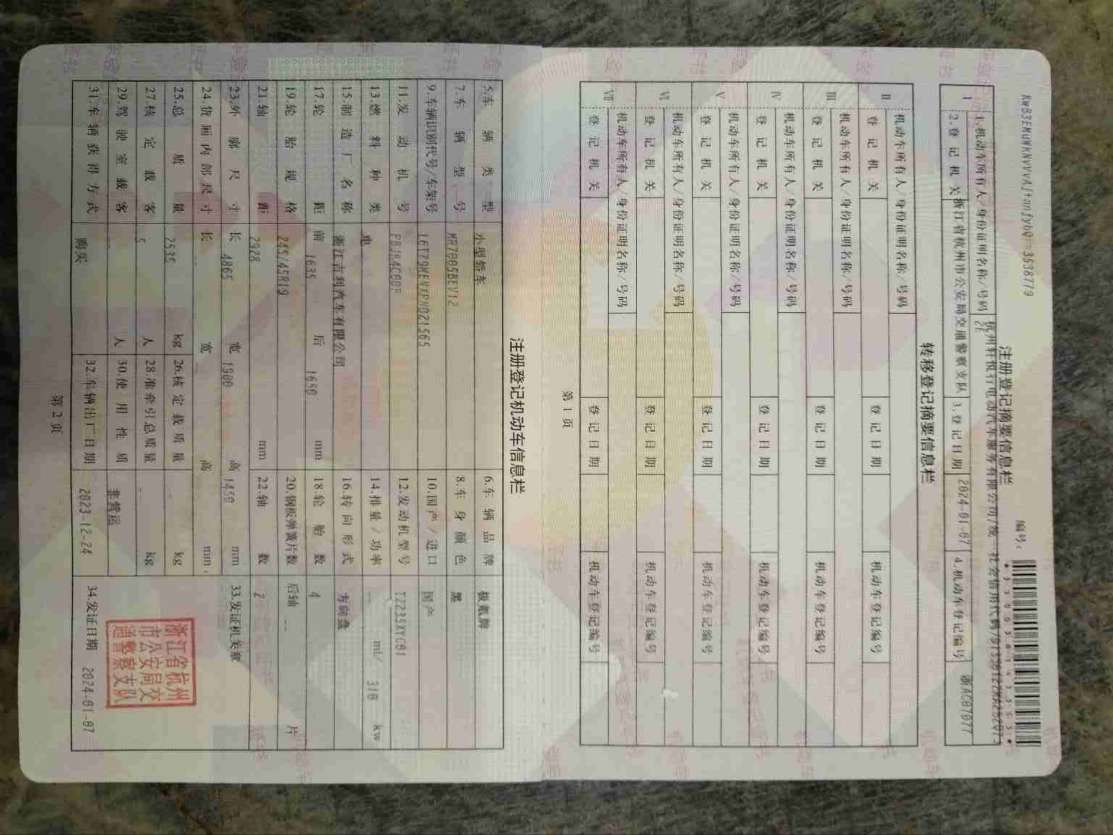 注册登记摘要信息栏
编号:
1.机动车所有人/身份证明名称/号码
2.登记机关 浙江省杭州市公安局交通警察支队 3.登记日期 2024-01-07 4.机动车登记编号
转移登记摘要信息栏
II 机动车所有人/身份证明名称/号码
登记机关 登记日期 机动车登记编号
III 机动车所有人/身份证明名称/号码
登记机关 登记日期 机动车登记编号
IV 机动车所有人/身份证明名称/号码
登记机关 登记日期 机动车登记编号
V 机动车所有人/身份证明名称/号码
登记机关 登记日期 机动车登记编号
VI 机动车所有人/身份证明名称/号码
登记机关 登记日期 机动车登记编号
VII 机动车所有人/身份证明名称/号码
登记机关 登记日期 机动车登记编号
第 1 页
注册登记机动车信息栏
5.车辆类型 小型轿车 6.车辆品牌 极氪牌
7.车辆型号 MR7005BEV12 8.车身颜色 黑
9.车辆识别代号/车架号 10.国产/进口 国产
11.发动机号 12.发动机型号 TZ235XYC01
13.燃料种类 电 14.排量/功率 -- ml/ 310 kw
15.制造厂名称 浙江吉利汽车有限公司 16.转向形式 方向盘
17.轮距 前 1635 后 1650 mm 18.轮胎数 4
19.轮胎规格 245/45R19 20.钢板弹簧片数 后轴 -- 片
21.轴距 2928 mm 22.轴数 2
23.外廓尺寸 长 4865 宽 1900 高 1450 mm 33.发证机关章
24.货厢内部尺寸 长 宽 高 mm
25.总质量 2535 kg 26.核定载质量 kg
27.核定载客 5 人 28.准牵引总质量 kg
29.驾驶室载客 人 30.使用性质 非营运
31.车辆获得方式 购买 32.车辆出厂日期 2023-12-24 34.发证日期 2024-01-07
浙江省杭州
市公安局交
通警察支队
第 2 页